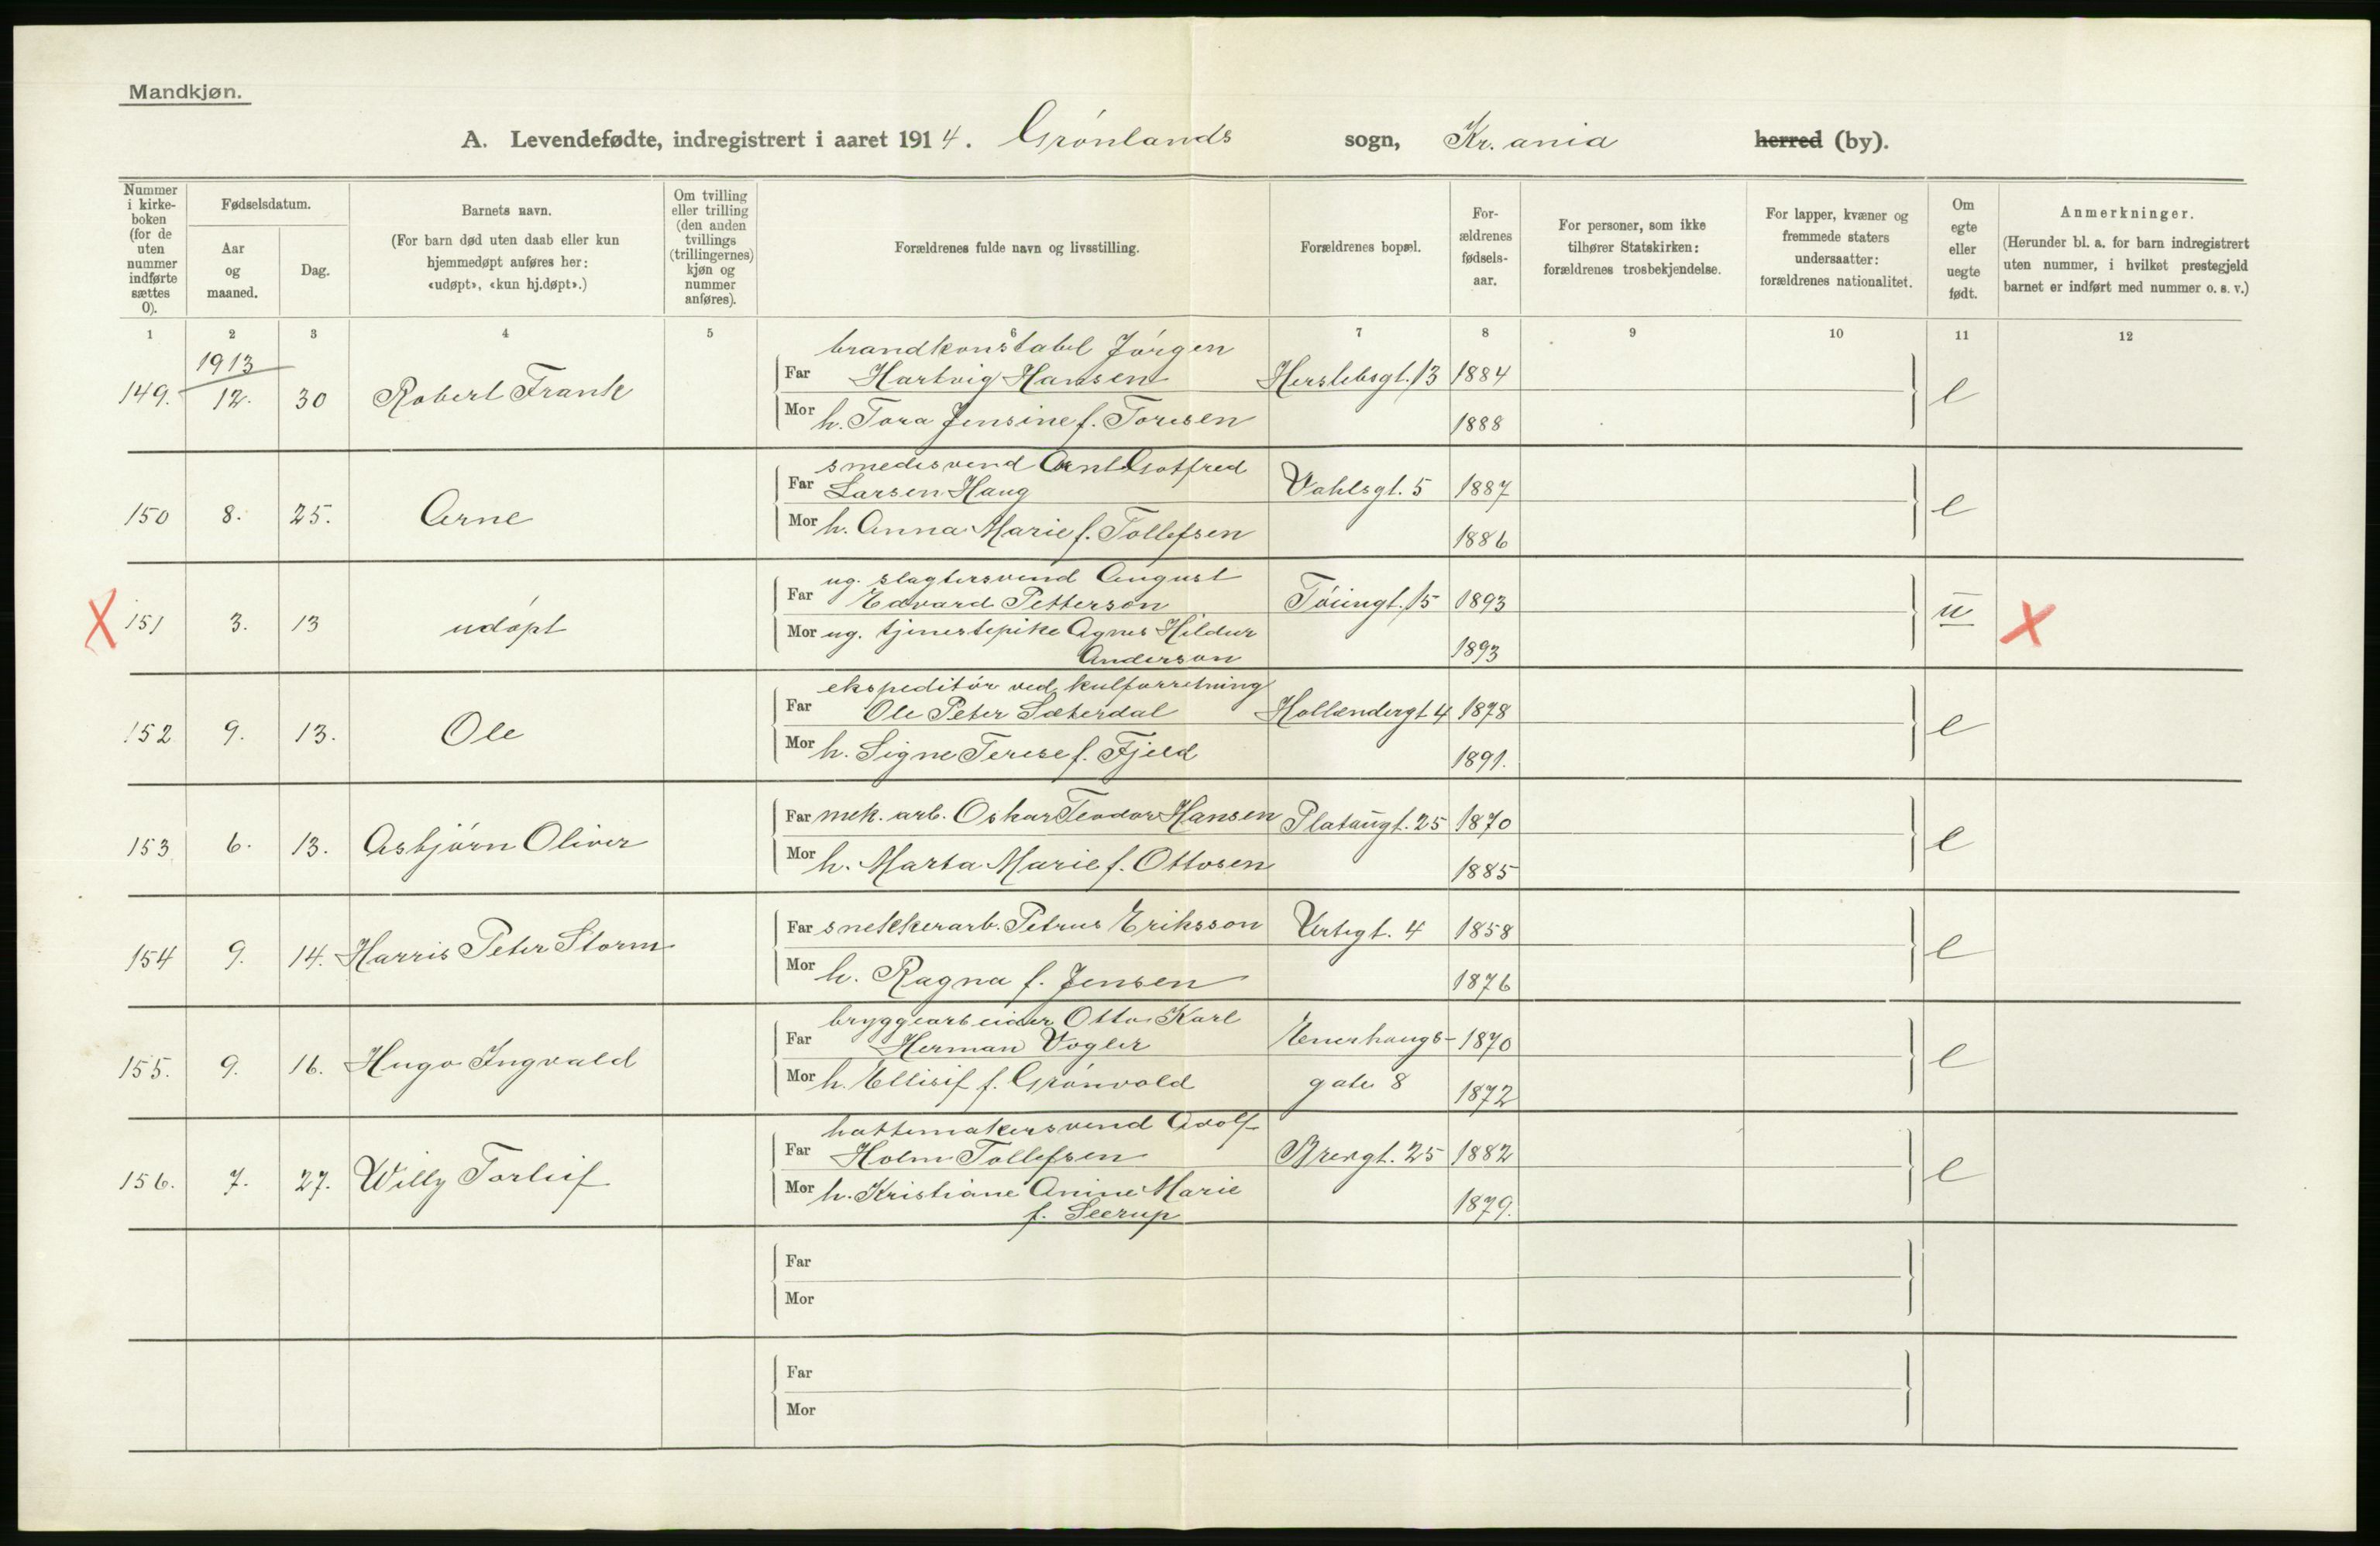 Mandkjøn.
A. Levendefødte, indregistrert i aaret 1914. Grønlands sogn, Kr.ania herred (by).
Nummer i kirke-boken (for de uten nummer indførte sættes 0).
Fødselsdatum.
Aar og maaned.
Dag.
Barnets navn.
(For barn død uten daab eller kun hjemmedøpt anføres her: «udøpt», «kun hj.døpt».)
Om tvilling eller trilling (den anden tvillings (trillingernes) kjøn og nummer anføres).
Forældrenes fulde navn og livsstilling.
Forældrenes bopæl.
For-ældrenes fødsels-aar.
For personer, som ikke tilhører Statskirken: forældrenes trosbekjendelse.
For lapper, kvæner og fremmede staters undersaatter: forældrenes nationalitet.
Om egte eller uegte født.
Anmerkninger.
(Herunder bl. a. for barn indregistrert uten nummer, i hvilket prestegjeld barnet er indført med nummer o. s. v.)
1 2 3 4 5 6 7 8 9 10 11 12
1913
149. 12. 30 Robert Frank
brandkonstabel Jørgen
Far Hartvig Hansen Herslebsgt. 13 1884 e
Mor h. Tora Jensine f. Toresen 1888
smedesvend Arnt Gotfred
150 8. 25. Arne Far Larsen Haug Vahlsgt. 5 1887 e
Mor h. Anna Marie f. Tollefsen 1886
ug. slagtersvend August
X 151 3. 13 udøpt Far Edvard Petterson Tøiengt. 15 1893 u X
Mor ug. tjenestepike Agnes Hildur
Anderson 1893
ekspeditør ved kulforretning
152 9. 13. Ole Far Ole Peter Sæterdal Hollendergt 4 1878 e
Mor h. Signe Terese f. Fjeld 1891.
153 6. 13. Asbjørn Oliver Far mek. arb. Oskar Teodor Hansen Plataugt. 25 1870 e
Mor h. Marta Marie f. Ottosen 1885
154 9. 14. Harris Peter Storm Far snekkerarb. Petrus Eriksson Urtegt. 4 1858 e
Mor h. Ragna f. Jensen 1876
bryggearbeider Otto Karl
155. 9. 16. Hugo Ingvald Far Herman Vogler Enerhaugs- 1870 e
Mor h. Ellisif f. Grønvold gate 8 1872
hattemakersvend Adolf
156. 7. 27. Willy Torleif Far Holm Tollefsen Breigt. 25 1882 e
Mor h. Kristiane Anine Marie
f. Seerup 1879.
Far
Mor
Far
Mor